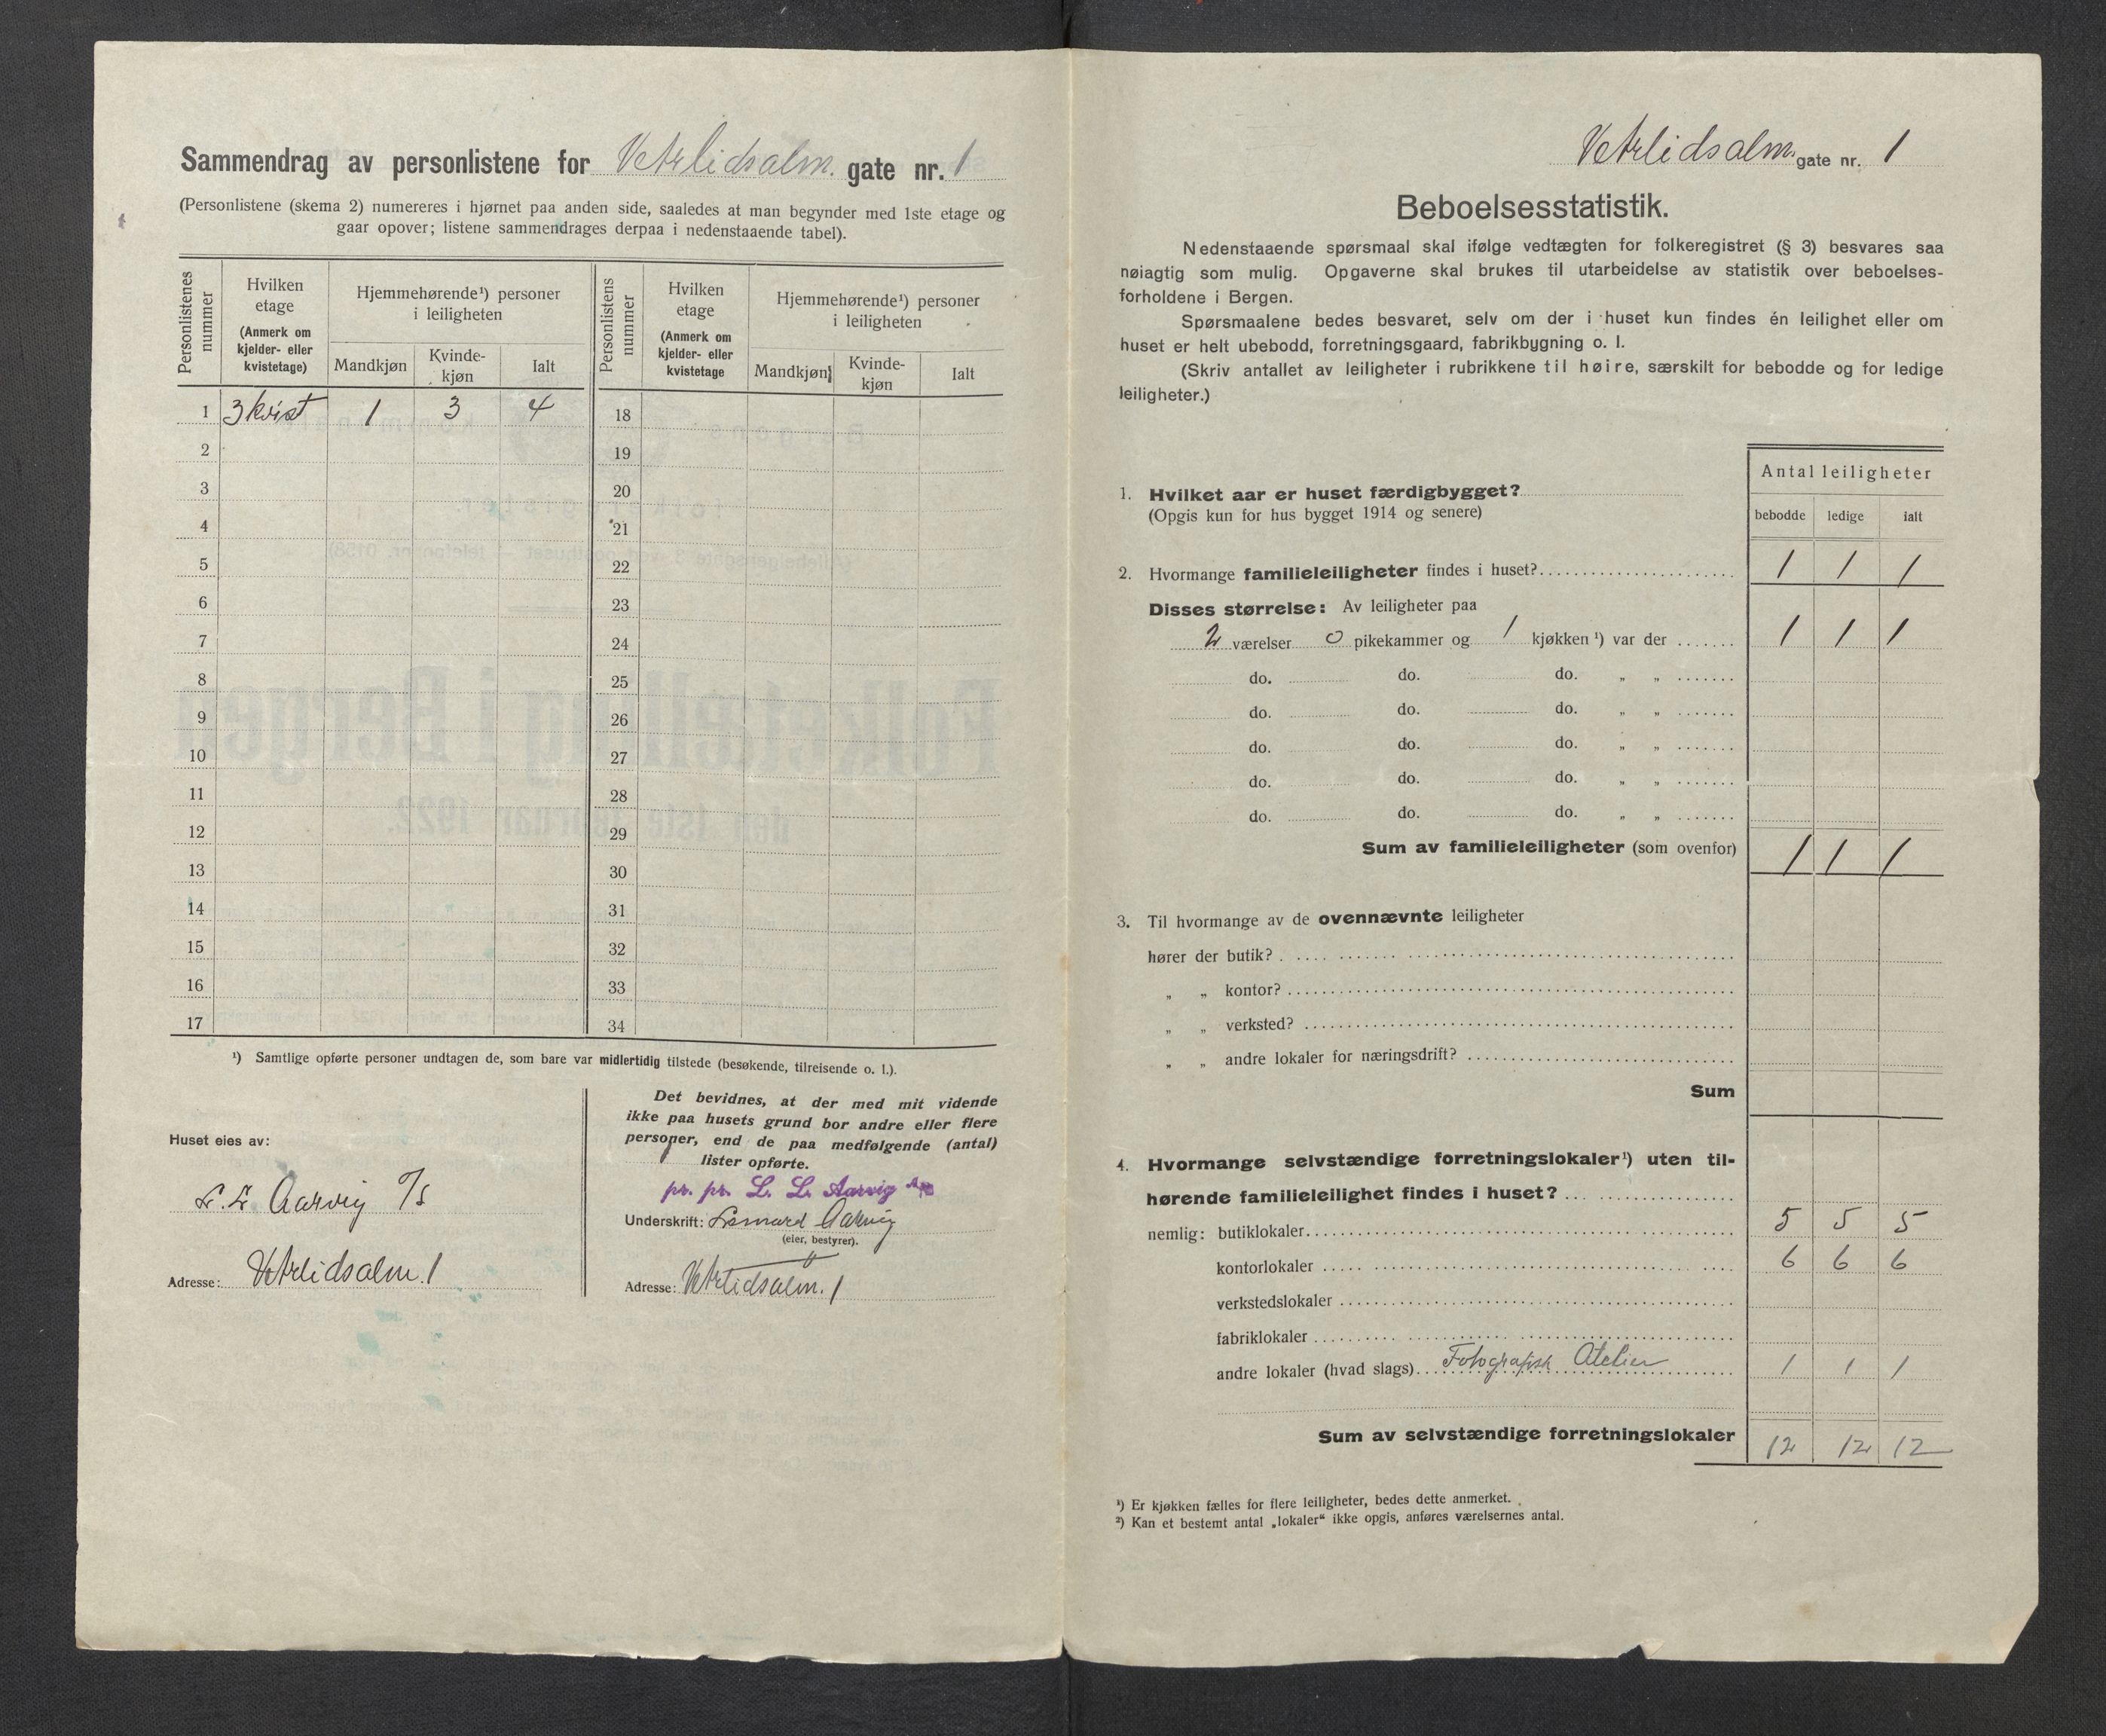 Sammendrag av personlistene for Vetrlidsalm. gate nr. 1
(Personlistene (skema 2) numereres i hjørnet paa anden side, saaledes at man begynder med 1ste etage og
gaar opover; listene sammendrages derpaa i nedenstaaende tabel).
Personlistenes nummer
Hvilken etage (Anmerk om kjelder- eller kvistetage)
Hjemmehørende¹) personer i leiligheten
Mandkjøn Kvinde-kjøn Ialt
Personlistens nummer
Hvilken etage (Anmerk om kjelder- eller kvistetage
Hjemmehørende¹) personer i leiligheten
Mandkjøn Kvinde-kjøn Ialt
1 3 kvist 1 3 4 18
2 19
3 20
4 21
5 22
6 23
7 24
8 25
9 26
10 27
11 28
12 29
13 30
14 31
15 32
16 33
17 34
¹) Samtlige opførte personer undtagen de, som bare var midlertidig tilstede (besøkende, tilreisende o. l.).
Huset eies av:
L. L. Aarvig A/S
Adresse: Vetrlidsalm. 1
Det bevidnes, at der med mit vidende
ikke paa husets grund bor andre eller flere
personer, end de paa medfølgende (antal)
1 lister opførte.
pr. pr. L. L. Aarvig A/S
Underskrift: Lennard Aarvig
(eier, bestyrer).
Adresse: Vetrlidsalm. 1
Vetrlidsalm. gate nr. 1
Beboelsesstatistik.
Nedenstaaende spørsmaal skal ifølge vedtægten for folkeregistret (§ 3) besvares saa
nøiagtig som mulig. Opgaverne skal brukes til utarbeidelse av statistik over beboelses-
forholdene i Bergen.
Spørsmaalene bedes besvaret, selv om der i huset kun findes én leilighet eller om
huset er helt ubebodd, forretningsgaard, fabrikbygning o. l.
(Skriv antallet av leiligheter i rubrikkene til høire, særskilt for bebodde og for ledige
leiligheter.)
Antal leiligheter
bebodde ledige ialt
1. Hvilket aar er huset færdigbygget?
(Opgis kun for hus bygget 1914 og senere)
2. Hvormange familieleiligheter findes i huset? 1 1 1
Disses størrelse: Av leiligheter paa
2 værelser 0 pikekammer og 1 kjøkken ¹) var der 1 1 1
do. do. do. „ „
do. do. do. „ „
do. do. do. „ „
do. do. do. „ „
do. do. do. „ „
Sum av familieleiligheter (som ovenfor) 1 1 1
3. Til hvormange av de ovennævnte leiligheter
hører der butik?
„ „ kontor?
„ „ verksted?
„ „ andre lokaler for næringsdrift?
Sum
4. Hvormange selvstændige forretningslokaler¹) uten til-
hørende familieleilighet findes i huset?
nemlig: butiklokaler 5 5 5
kontorlokaler 6 6 6
verkstedslokaler
fabriklokaler
andre lokaler (hvad slags) Fotografisk Atelier 1 1 1
Sum av selvstændige forretningslokaler 12 12 12
¹) Er kjøkken fælles for flere leiligheter, bedes dette anmerket.
²) Kan et bestemt antal „lokaler“ ikke opgis, anføres værelsernes antal.